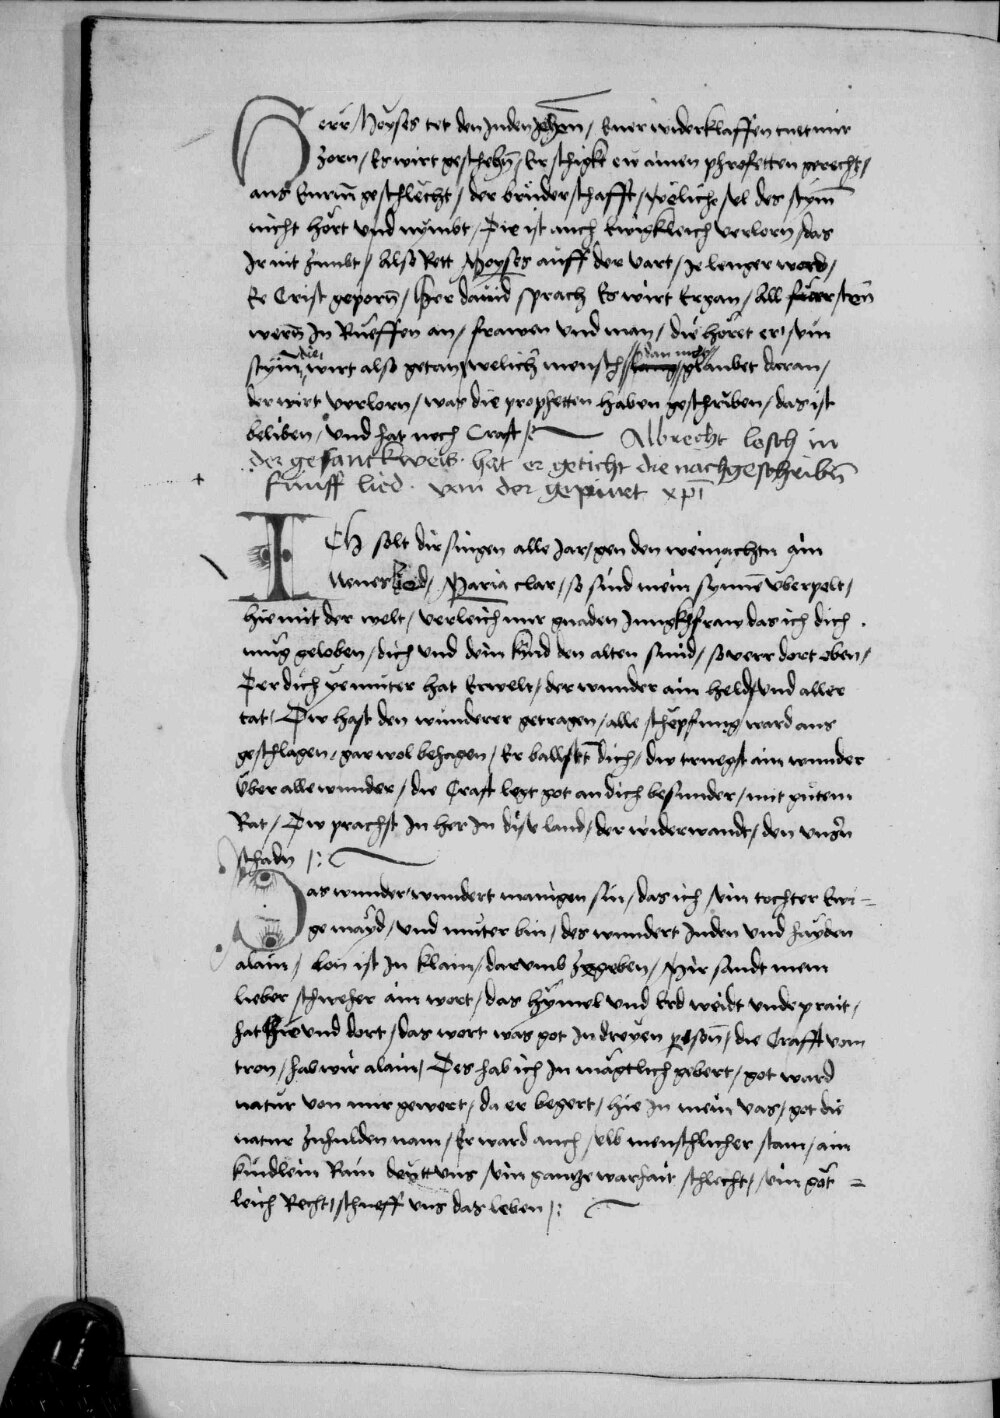 Herr Moyses tet den Juden zhen / Ewer widerklaffen tuet mir
zorn / Es wirt geschehn̄ / Er schigkt ew ainen phrofetten gerecht /
aus Ewrm̄ geschlächt / der bruderschafft / weliche sel des stym̄
nicht hört vnd nymbt / Die ist auch Ewigkleich verlorn / das
Ir nit zimbt / Also Rett Moyses auff der vart / Je lenger ward /
Ee Crist geporn̄ / Her dauid sprach Es wirt Ergan / All
wern̄ In Rueffen an / frawen vnd man / die höret er / sein
stym̄ die wirt also getan / welich mensch dan nicht glaubet daran /
der wirt verlorn / was die propfetten haben geschriben / das ist
beliben / vnd hat noch Craft /: Albrecht lesch in
der gesanckweis hat er geticht die nachgeschribn̄
fünff lied von der gepurt xpi
ICh solt dir singen alle Jar / gen den weinachtn ain
Newes lied / Maria clar / so sind mein synne vberzelt /
hie mit der welt / verleich mir gnaden Jungkfraw das ich dich
mug geloben / dich vnd dein kind den alten smid / so verr dort oben /
Der dich ze muter hat Erwelt / der wunder ain held / vnd aller
tat / Dw hast den wunderer getragen / alle schepfung ward aus
geschlagen / gar wol behagen / Er dich / dw truegst ain wunder
über alle wunder / die Craft legt got an dich besunder / mit gutem
Rat / Dw prachst In her In dise land / der widerwandt / den vnsn̄
schadn /:
Das wunder wundert manigen sin / das ich sein tochter Ewi=
ge mayd / vnd muter bin / des wundert Juden vnd hayden
alain / lon ist In klain / darumb ze geben / Mir sandt mein
lieber schweher ain wort / das hymel vnd Erd weidt vnde prait /
hat hie vnd dort / das wort was got In dreyen pson̄ / die Crafft vom
tron / hab wir alain / Des hab ich In mägtlich gebert / got ward
natur von mir gewert / da er begert / hie In mein vas / got die
natur zu hulden nam / Er ward auch selb menschlicher stam / ain
kindlein Rain deutt vns sein gantze warhait schlecht / sein göt=
leich Recht / schueff vns das leben /: